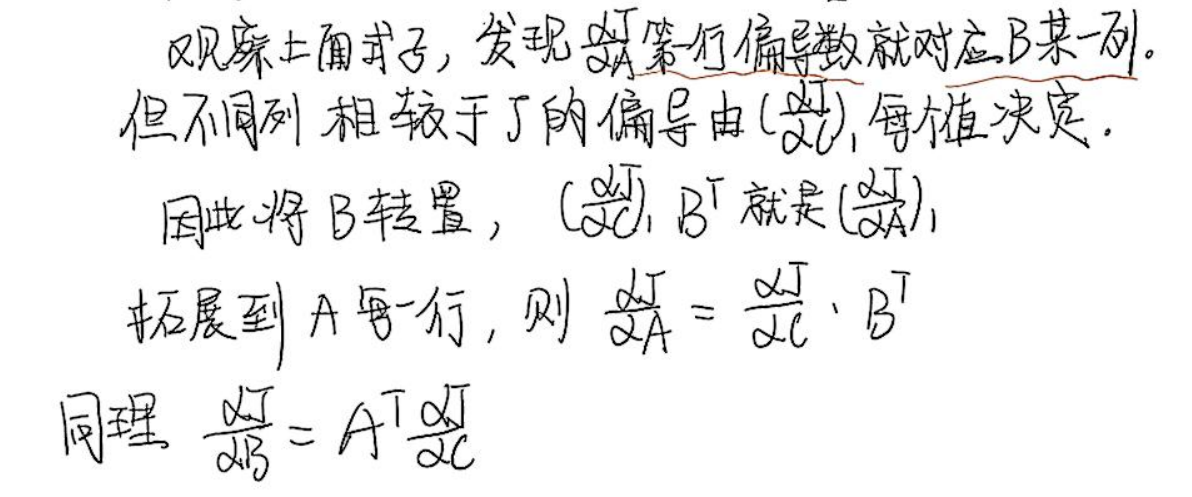 观察上面式子，发现 ∂J/∂A 第一行偏导数就对应B某一列。
但不同列 相较于J的偏导由(∂J/∂C)₁每个值决定.
因此将B转置， (∂J/∂C)₁ Bᵀ 就是(∂J/∂A)₁
拓展到 A 每一行，则 ∂J/∂A = ∂J/∂C · Bᵀ
同理 ∂J/∂B = Aᵀ ∂J/∂C